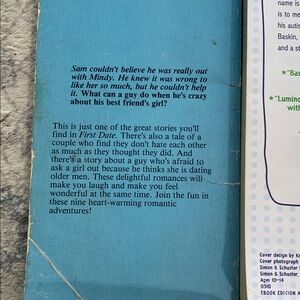 Sam couldn't believe he was really out
with Mindy. He knew it was wrong to
like her so much, but he couldn't help
it. What can a guy do when he's crazy
about his best friend's girl?
This is just one of the great stories you'll
find in First Date. There's also a tale of a
couple who find they don't hate each other
as much as they thought they did. And
there's a story about a guy who's afraid to
ask a girl out because he thinks she is dating
older men. These delightful romances will
make you laugh and make you feel
wonderful at the same time. Join the fun in
these nine heart-warming romantic
adventures!
name is
is to me
his autis
Baskin,
and a st
★"Bas
★"Lumino
with
Cover design by K
Cover photograph
Simon & Schuster
Simon & Schuster,
Ages 10-14
0310
EBOOK EDITION A